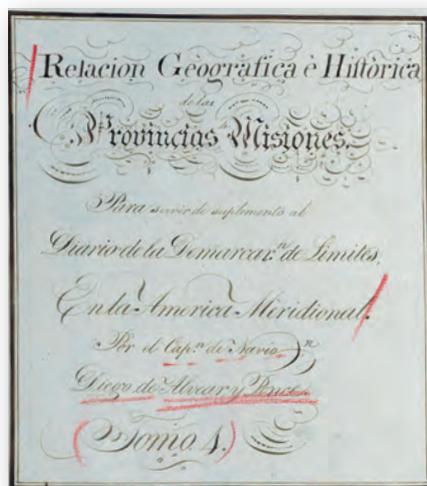 Relacion Geografica è Històrica
de las
Provincias Misiones.
Para servir de suplemento al
Diario de la Demarcac.n de Limites,
En la America Meridional.
Por el Cap.n de Navio
Dn
Diego de Alvear y Ponce
Tomo 4.